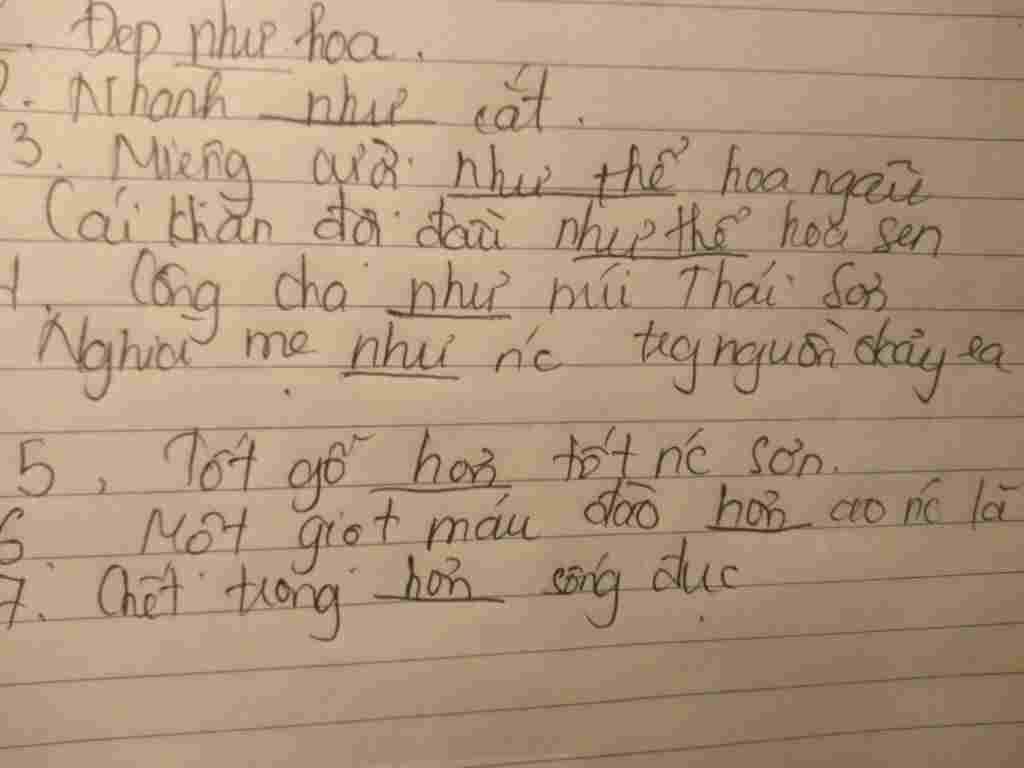 . Đẹp như hoa.
2. Nhanh như cắt.
3. Miệng cười như thể hoa ngâu
Cái khăn đội đầu như thể hoa sen
4. Công cha như núi Thái Sơn
Nghĩa mẹ như nc trg nguồn chảy ra
5, Tốt gỗ hơn tốt nc sơn.
6 Một giọt máu đào hơn ao nc lã
7. Chết trong hơn sống đục